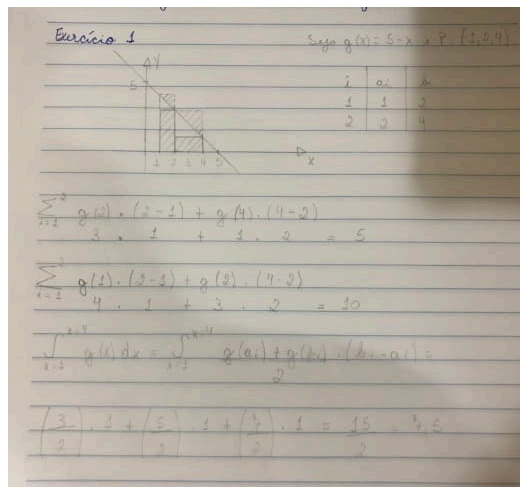 Exercício 1
Seja g(x) = 5-x e P = {1,2,4}
Y
5
1 2 3 4 5
x
i ai bi
1 1 2
2 2 4
∑ i=1 2 g(2) . (2-1) + g(4) . (4-2)
3 . 1 + 1 . 2 = 5
∑ i=1 2 g(1) . (2-1) + g(2) . (4-2)
4 . 1 + 3 . 2 = 10
∫ x=1 x=4 g(x) dx = ∫ x=1 x=4 g(ai) + g(bi) . (bi - ai) =
2
(3/2) . 1 + (5/2) . 1 + (7/2) . 1 = 15/2 = 7,5